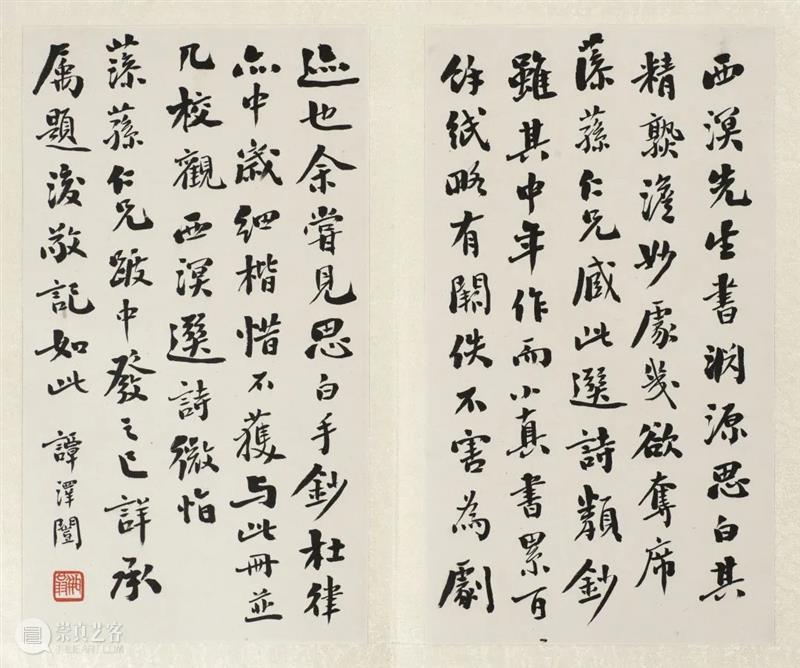 西溟先生書渊源思白其
精熟澹妙處幾欲奪席
蓀蓀仁兄臧此選詩類鈔
雖其中年作而小真書累百
餘紙略有闕佚不害為劇
迹也余嘗見思白手鈔杜律
亦中歲細楷惜不獲与此冊並
几校觀西溟選詩微恉
蓀蓀仁兄跋中發之已詳承
属題後敬記如此 譚澤闓
崇真艺客